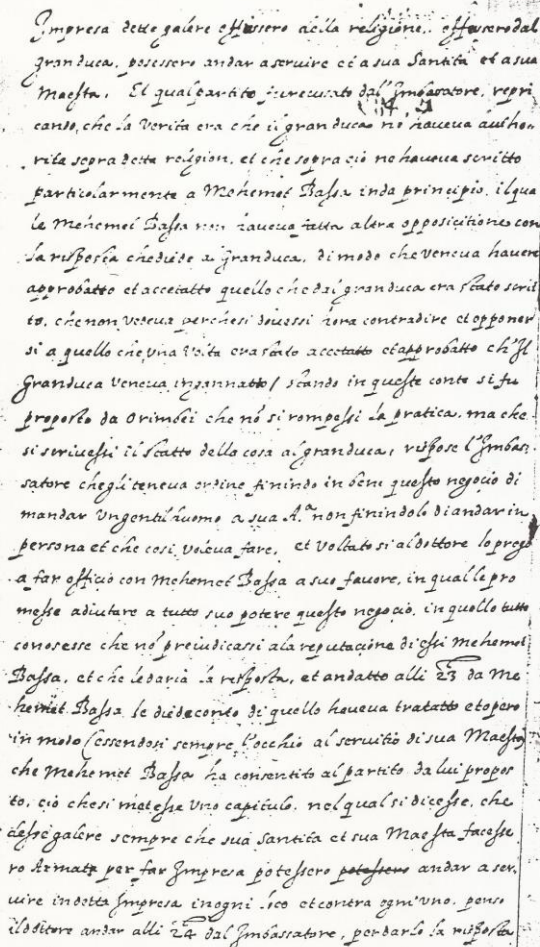 Impresa dette galere o fussero della religione, o fussero dal
granduca, posessero andar a servire et a sua Santita et a sua
Maesta. Et qual partito fu recusato dal' Imbasatore, repri
cando, che la verita era che il granduca nō haveva autho-
rita sopra detta religion. et che sopra ciò ne haveva scritto
particolarmente a Mehemet Bassa inda principio, il qua
le Mehemet Bassa non haveva fatta altra opposicitione con
la risposta che diede a Granduca, di modo che veneva havere
approbatto et accetatto quello che dal granduca era stato scrit
to, che non vedeva perche si dovessi hora contradire et opponer
si a quello che una volta era stato accetatto et approbatto ch' Il
Granduca veneva ingannatto / stando in queste conte si fu
proposto da Orimbei che nō si rompessi la pratica, ma che
si scrivessi il statto della cosa al granduca, rispose l'Imbas-
satore che gli teneva ordine finindo in bem questo negocio di
mandar un gentilhuomo a sua A.ᵃ non finindolo di andar in
persona et che cosi voleva fare, et voltatosi al dottore lo prego
a far officio con Mehemet Bassa a suo favore, in qual le pro
messe adiutare a tutto suo potere questo negocio, in quello tutto
conosesse che nō prejudicassi a la reputacione di essi Mehemet
Bassa, et che le daria la risposta, et andatto alli 23 da Me
hemet Bassa le diede conto di quello haveva tratatto et opero
in modo (essendosi sempre l'occhio al servitio di sua Maesta)
che Mehemet Bassa ha consentito al partito da lui propos
to, ciò che si metesse uno capitulo. nel qual si dicesse, che
desse galere sempre che sua Santita et sua Maesta facesse
ro Armata per far Impresa potessero potessero andar a ser-
vire in detta Impresa in ogni loco et contra ogni uno. penso
il dottore andar alli 24 dal Imbassatore, per darle la risposta